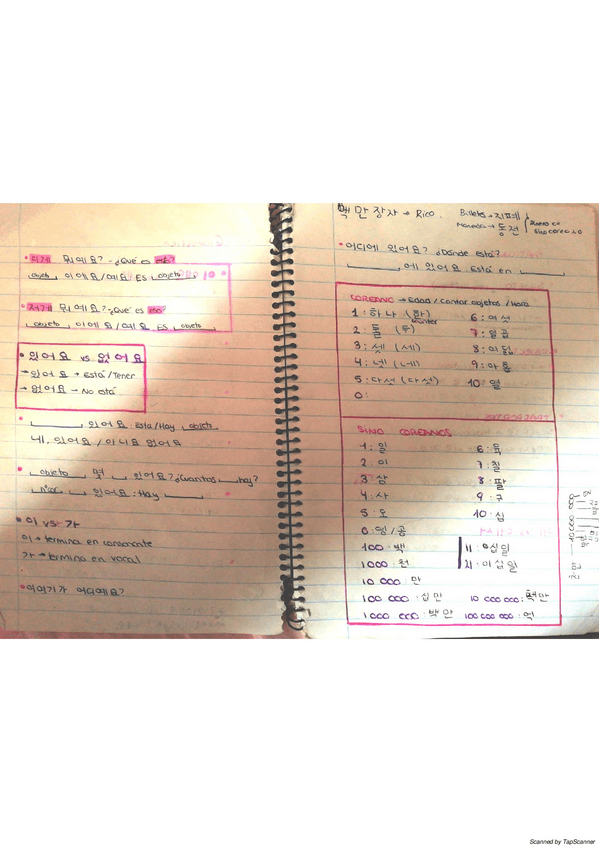 • 이게 뭐예요? - ¿Qué es esto?
objeto 이에요/예요 Es objeto
• 저게 뭐예요? - ¿Qué es eso?
objeto 이에요/예요 Es objeto
• 있어요 vs 없어요
→ 있어요 → Está/Tener
→ 없어요 → No está
• 있어요 Esta/Hay objeto
네, 있어요 / 아니요 없어요
• objeto 몇 있어요? ¿Cuántos hay?
있어요: Hay
• 이 vs 가
이 → termina en consonante
가 → termina en vocal
• 여기가 어디예요?
백만장자 → Rico
Billetes → 지폐
Monedas → 동전
• 어디에 있어요? ¿Dónde está?
에 있어요 Está en
COREANO → Edad / Contar objetos / Hora
1: 하나 (한) 6: 여섯
2: 둘 (두) 7: 일곱
3: 셋 (세) 8: 여덟
4: 넷 (네) 9: 아홉
5: 다섯 (다섯) 10: 열
0:
SINO COREANOS
1: 일 6: 육
2: 이 7: 칠
3: 삼 8: 팔
4: 사 9: 구
5: 오 10: 십
0: 영/공
100: 백 11: 십일
1000: 천 21: 이십일
10 000: 만
100 000: 십만 10 000 000: 천만
1 000 000: 백만 100 000 000: 억
Scanned by TapScanner